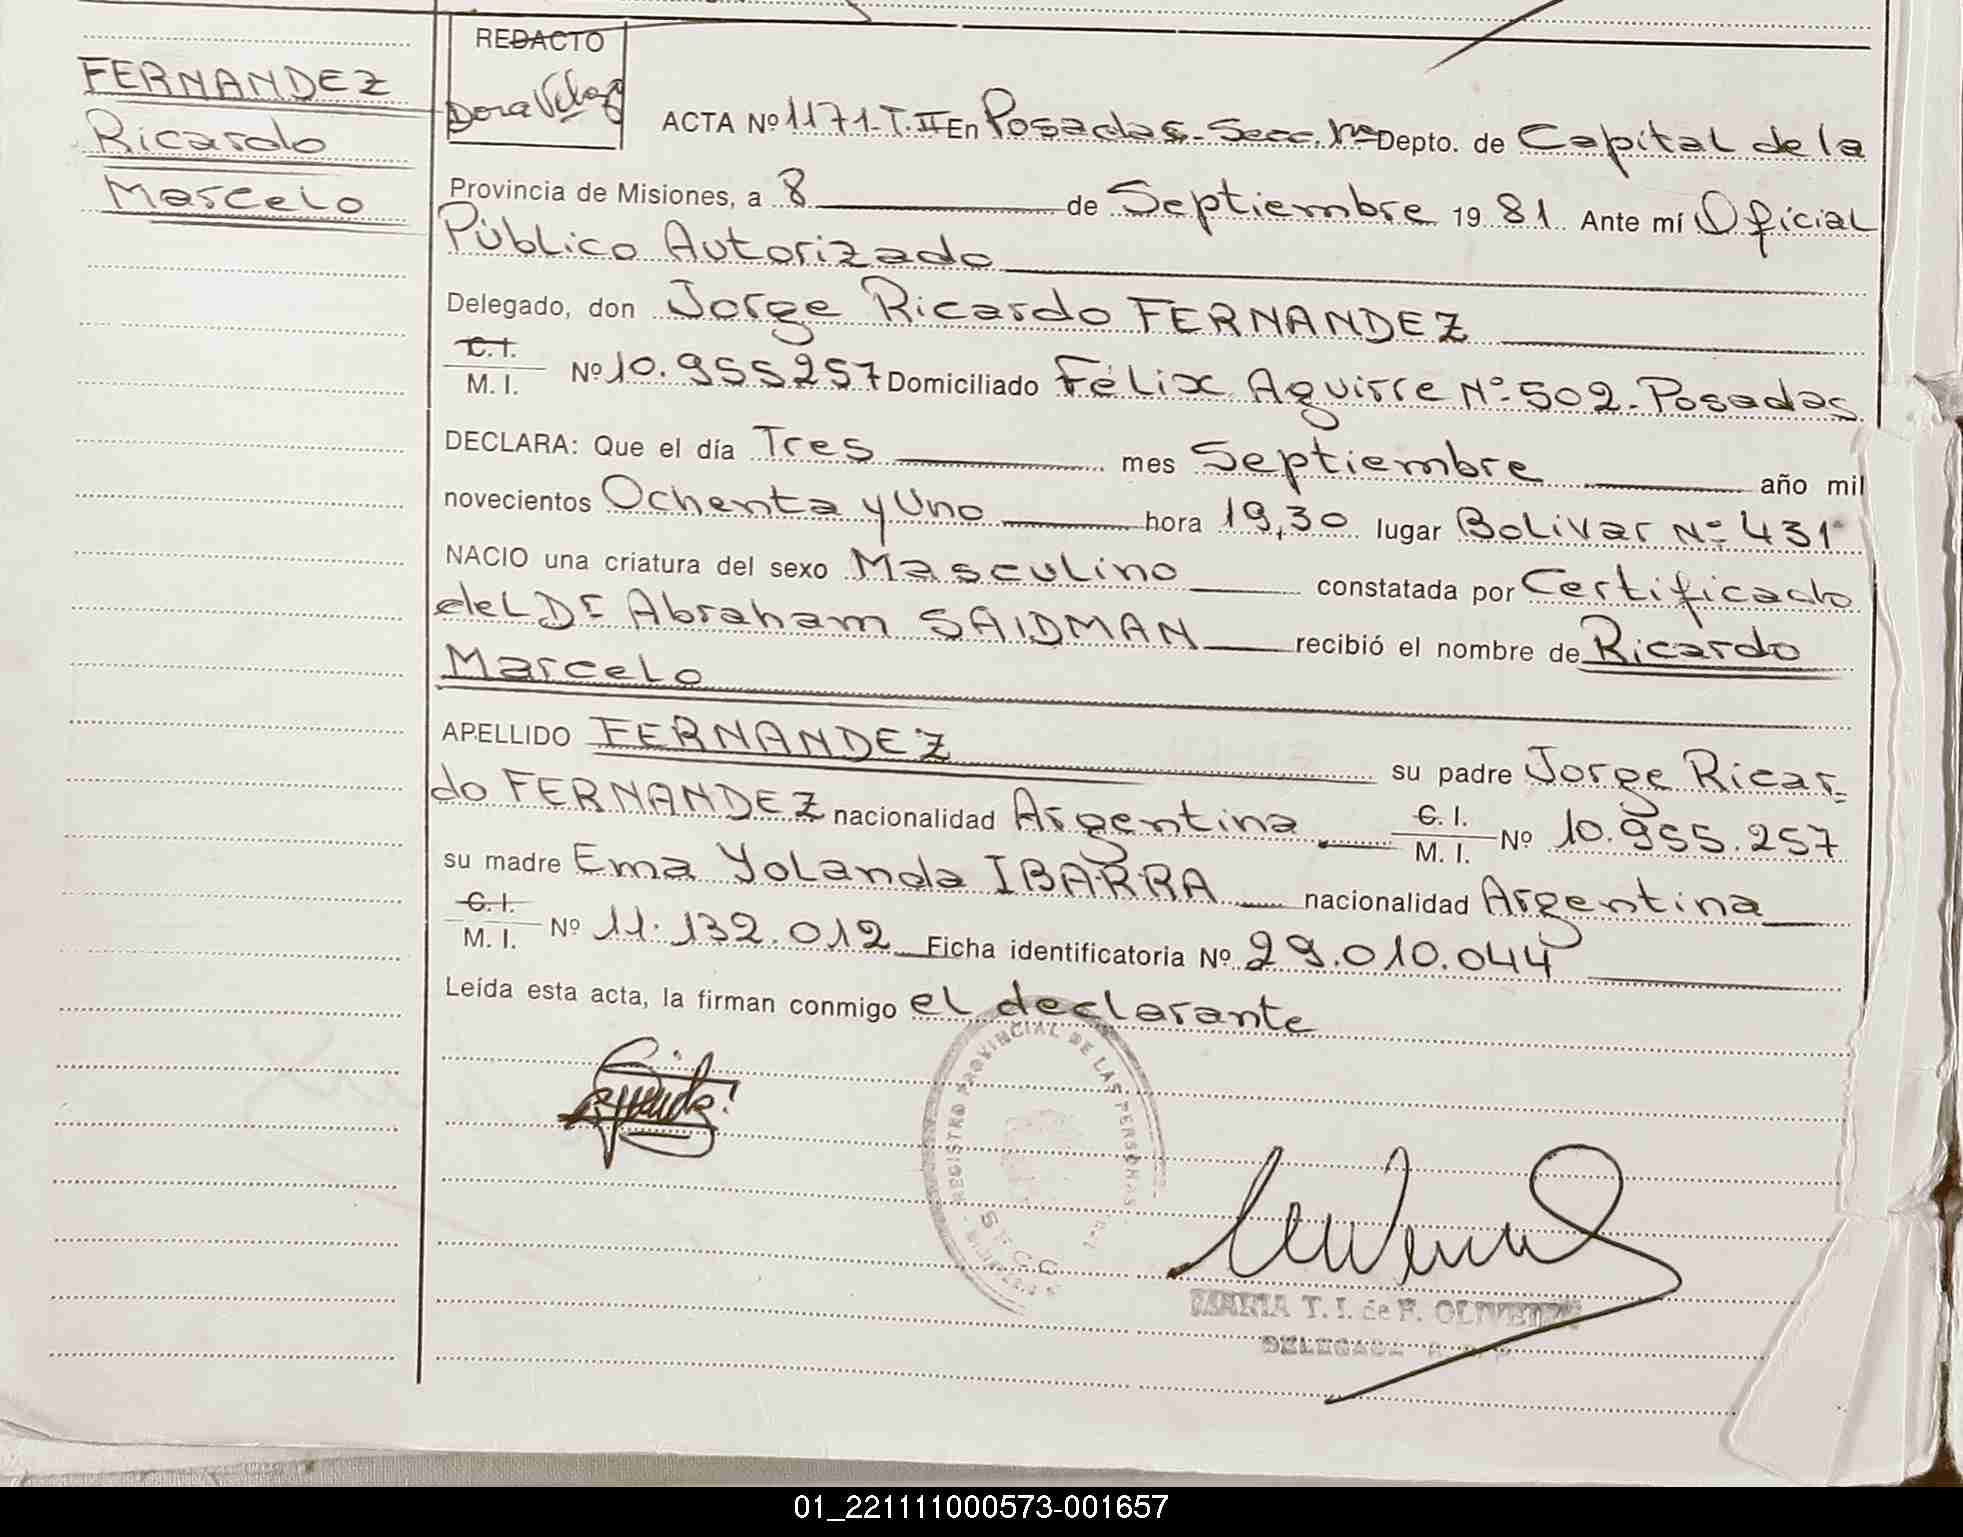 FERNANDEZ
Ricardo
Marcelo
REDACTO
Dora
ACTA Nº 1171-T.II En Posadas-Secc. 1ra Depto. de Capital de la
Provincia de Misiones, a 8 de Septiembre 1981 Ante mí Oficial
Público Autorizado
Delegado, don Jorge Ricardo FERNANDEZ
C.I.
M. I. Nº 10.955257 Domiciliado Félix Aguirre Nº 502-Posadas
DECLARA: Que el día Tres mes Septiembre año mil
novecientos Ochenta y Uno hora 19,30 lugar Bolivar Nº 431
NACIO una criatura del sexo Masculino constatada por Certificado
del Dr Abraham SAIDMAN recibió el nombre de Ricardo
Marcelo
APELLIDO FERNANDEZ su padre Jorge Ricar-
do FERNANDEZ nacionalidad Argentina C. I. M. I. Nº 10.955.257
su madre Ema Yolanda IBARRA nacionalidad Argentina
C. I.
M. I. Nº 11.132.012 Ficha identificatoria Nº 29.010.044
Leída esta acta, la firman conmigo el declarante
REGISTRO PROVINCIAL DE LAS PERSONAS
SECC
MARIA T. I. de F. OLIVEIRA
DELEGADA
01_221111000573-001657